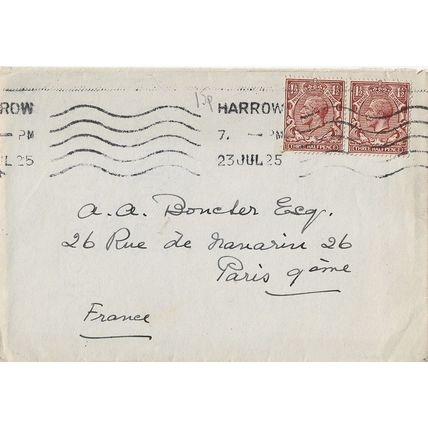 15p
ROW HARROW
- PM 7. - PM
JL 25 23 JUL 25
1½ 1½ 1½ 1½
THREE HALFPENCE THREE HALFPENCE
A. A. Boncher Esq.
26 Rue de Navarin 26
Paris 9ème
France